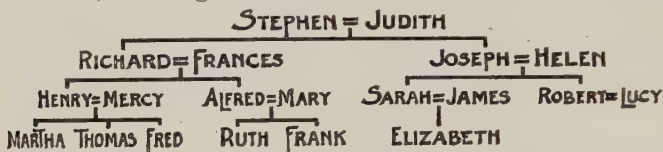 STEPHEN = JUDITH
RICHARD = FRANCES JOSEPH = HELEN
HENRY = MERCY ALFRED = MARY SARAH = JAMES ROBERT = LUCY
MARTHA THOMAS FRED RUTH FRANK ELIZABETH